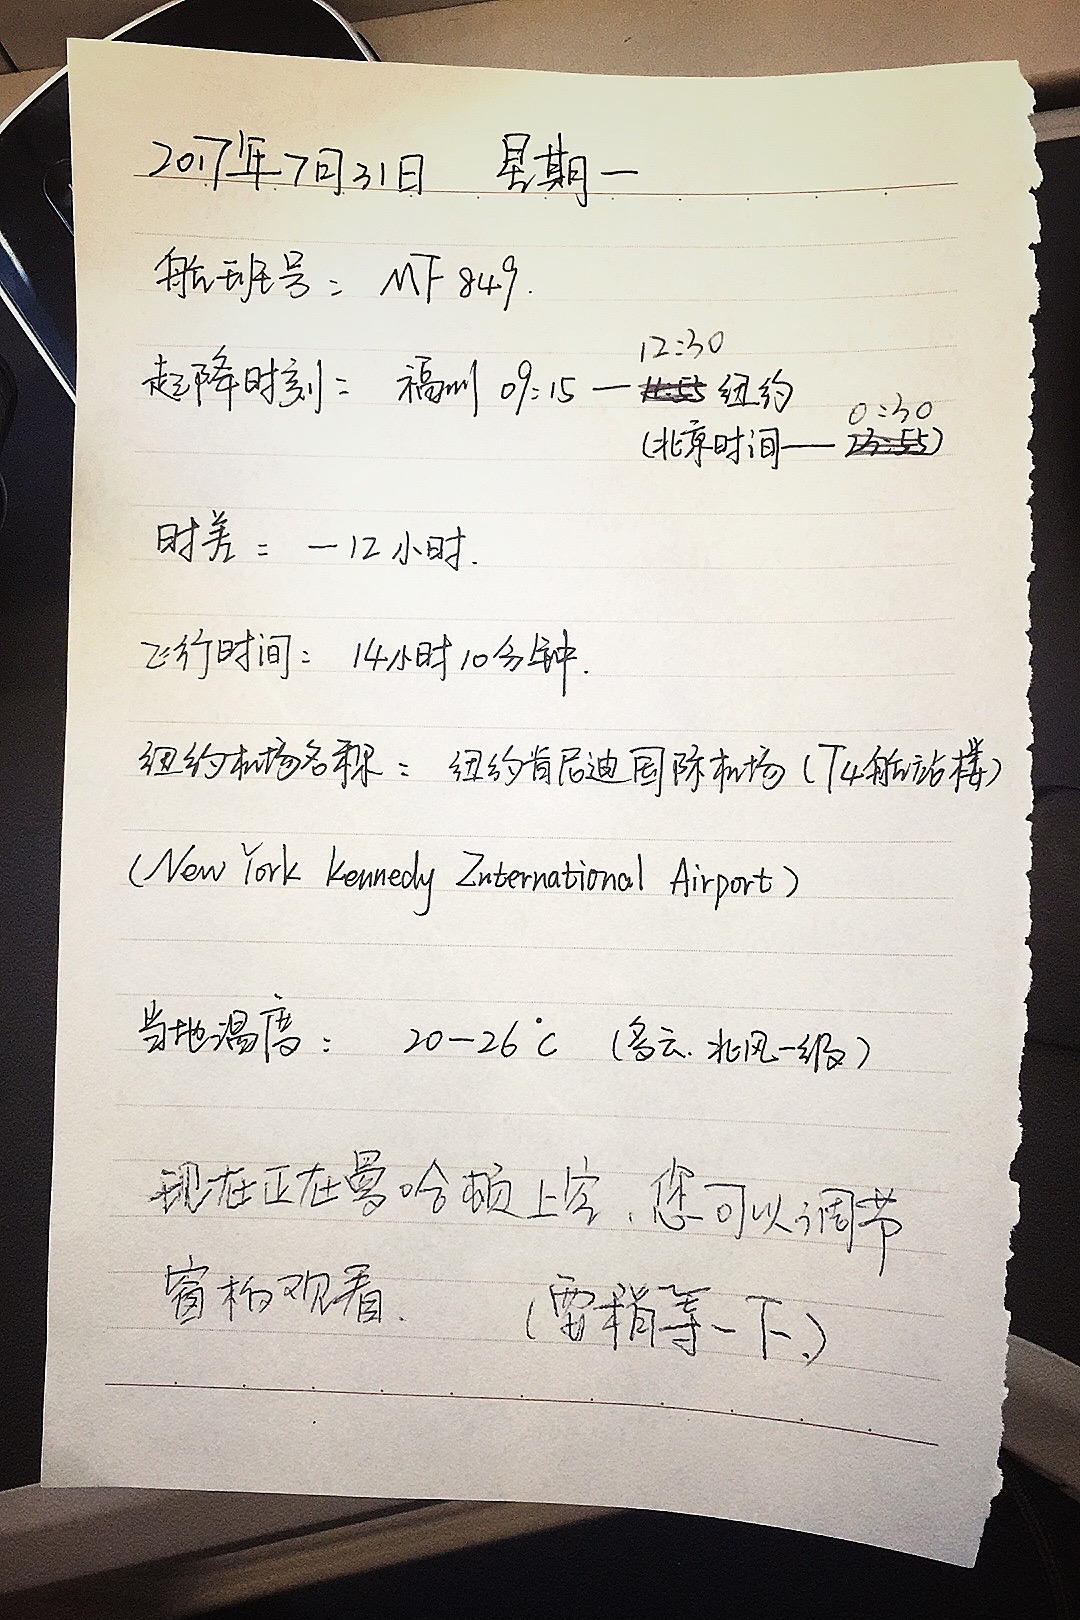 2017年7月31日 星期一
航班号: MF 849.
12:30
起降时刻: 福州 09:15 — 11:55 纽约
0:30
(北京时间 — 23:55)
时差: -12小时.
飞行时间: 14小时10分钟.
纽约机场名称: 纽约肯尼迪国际机场 (T4航站楼)
(New York Kennedy International Airport)
当地温度: 20-26℃ (多云. 北风一级)
现在正在曼哈顿上空, 您可以调节
窗格观看. (需稍等一下.)